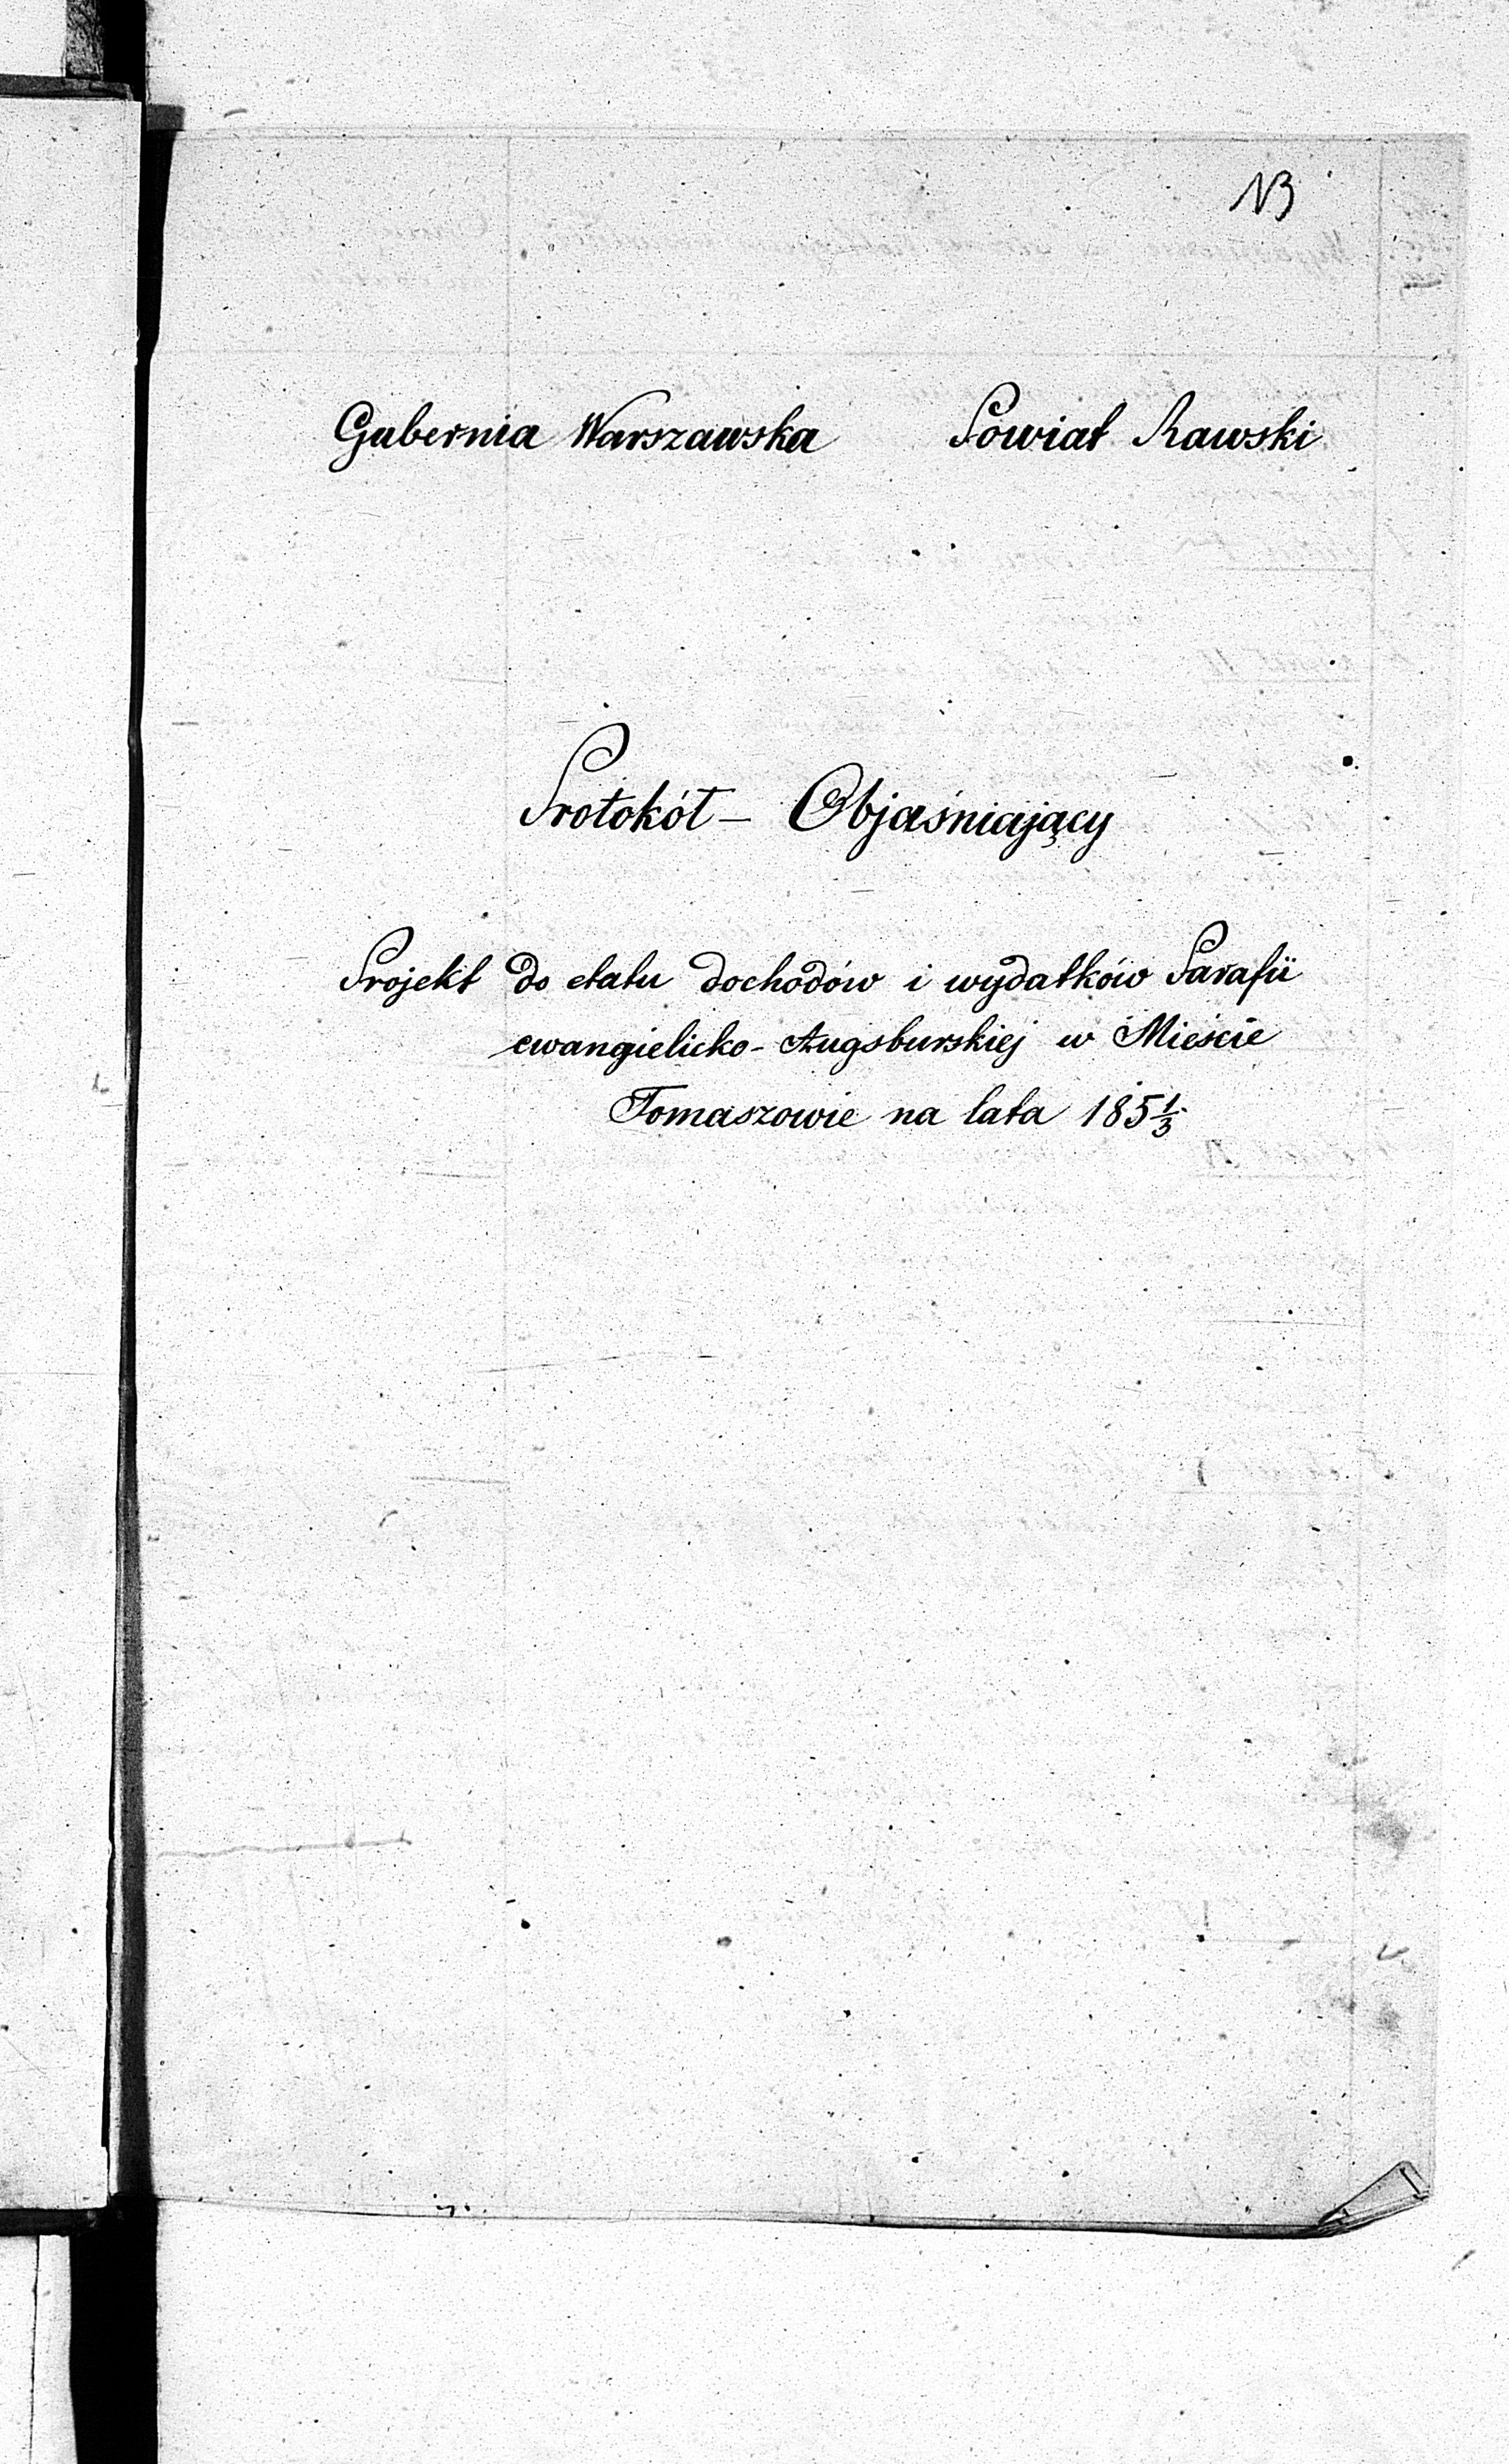 13
Gubernia Warszawska Powiat Rawski
Protokół – Objaśniający
Projekt do etatu dochodów i wydatków Parafii
ewangielicko-Augsburskiej w Mieście
Tomaszowie na lata 185 1/3